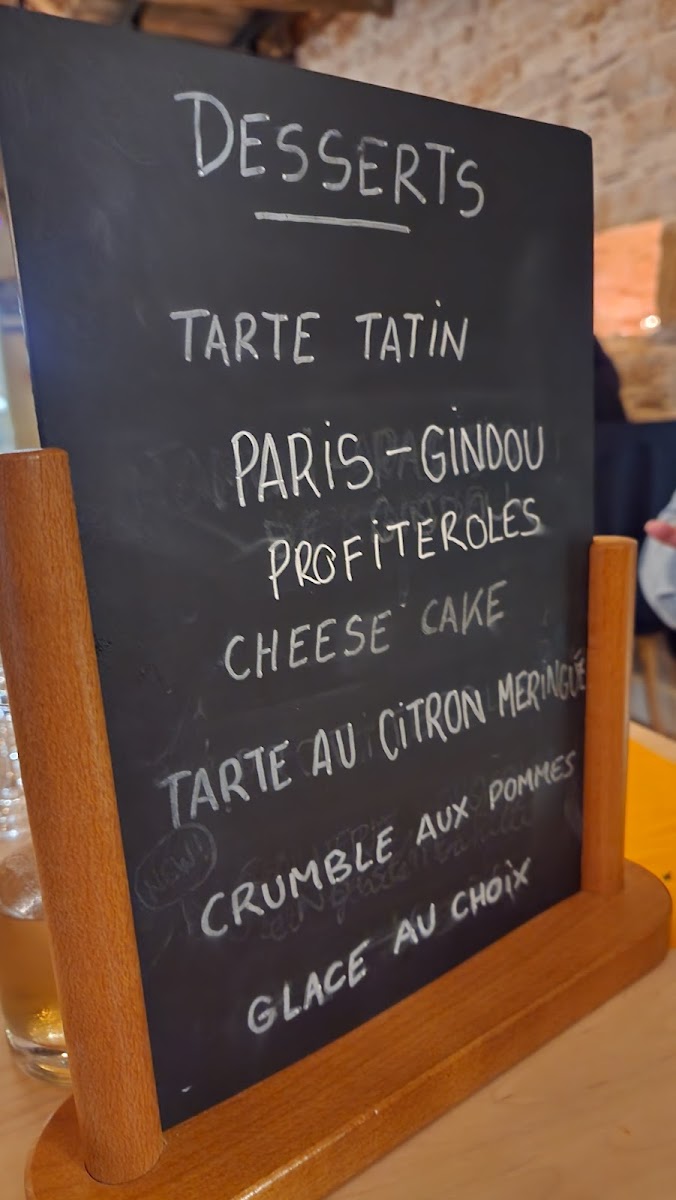 DESSERTS
TARTE TATIN
PARIS-GINDOU
PROFITEROLES
CHEESE CAKE
TARTE AU CITRON MERINGUÉ
CRUMBLE AUX POMMES
NEW!
GLACE AU CHOIX